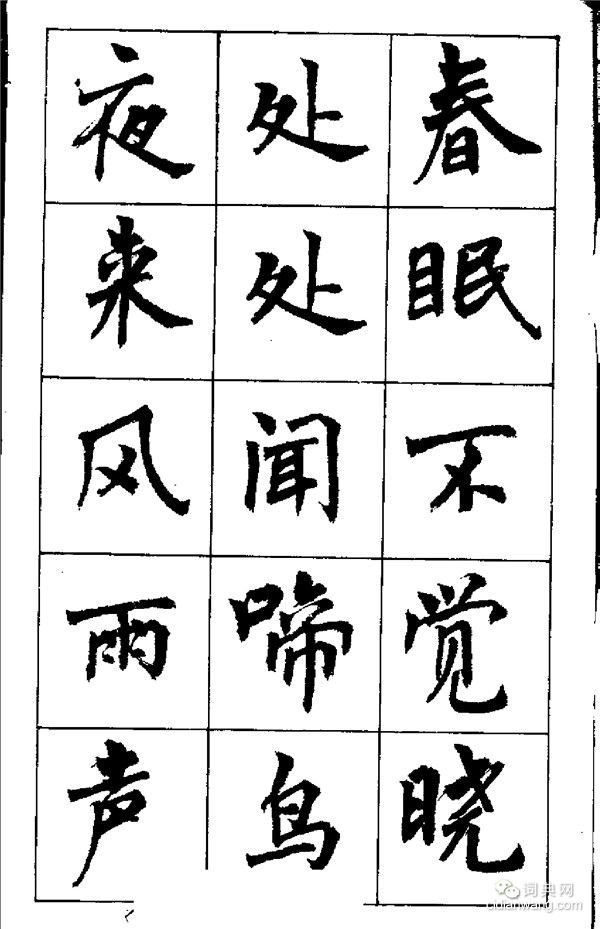 春眠不觉晓
处处闻啼鸟
夜来风雨声
词典网
cidianwang.com